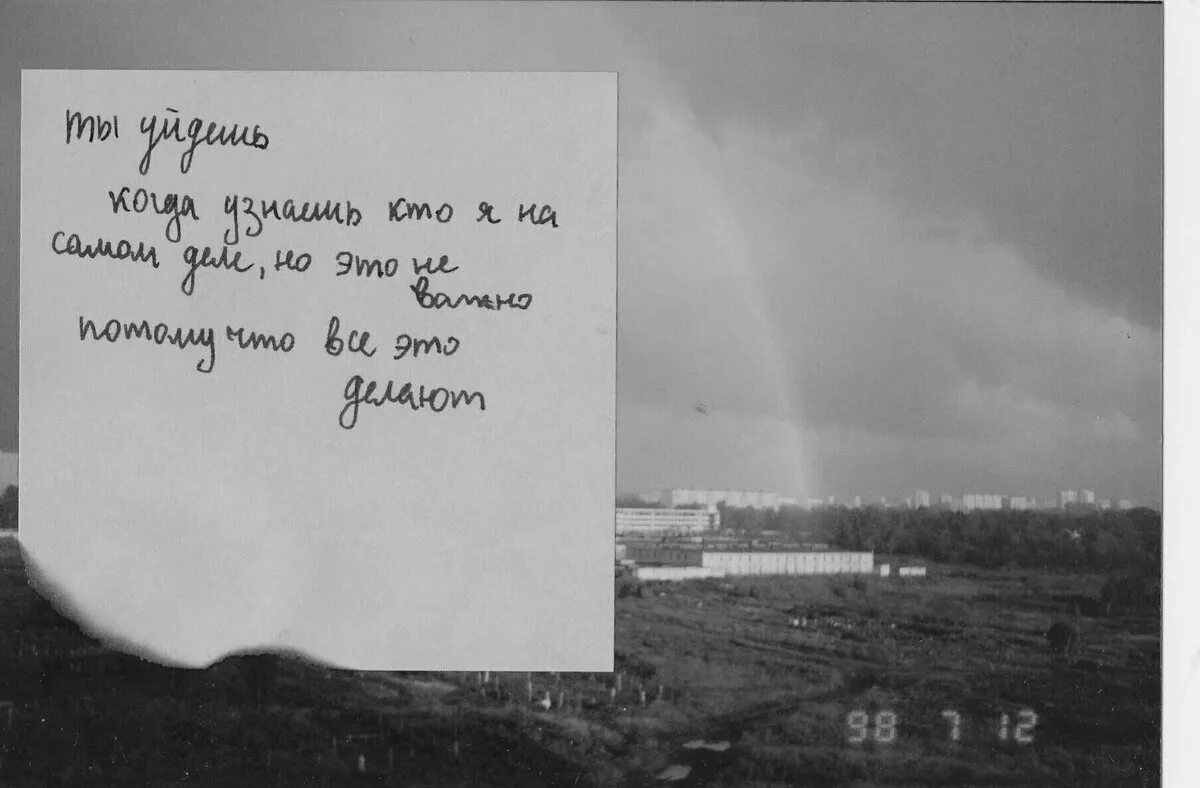 ты уйдешь
когда узнаешь кто я на
самом деле, но это не
важно
потому что все это
делают
98 7 12